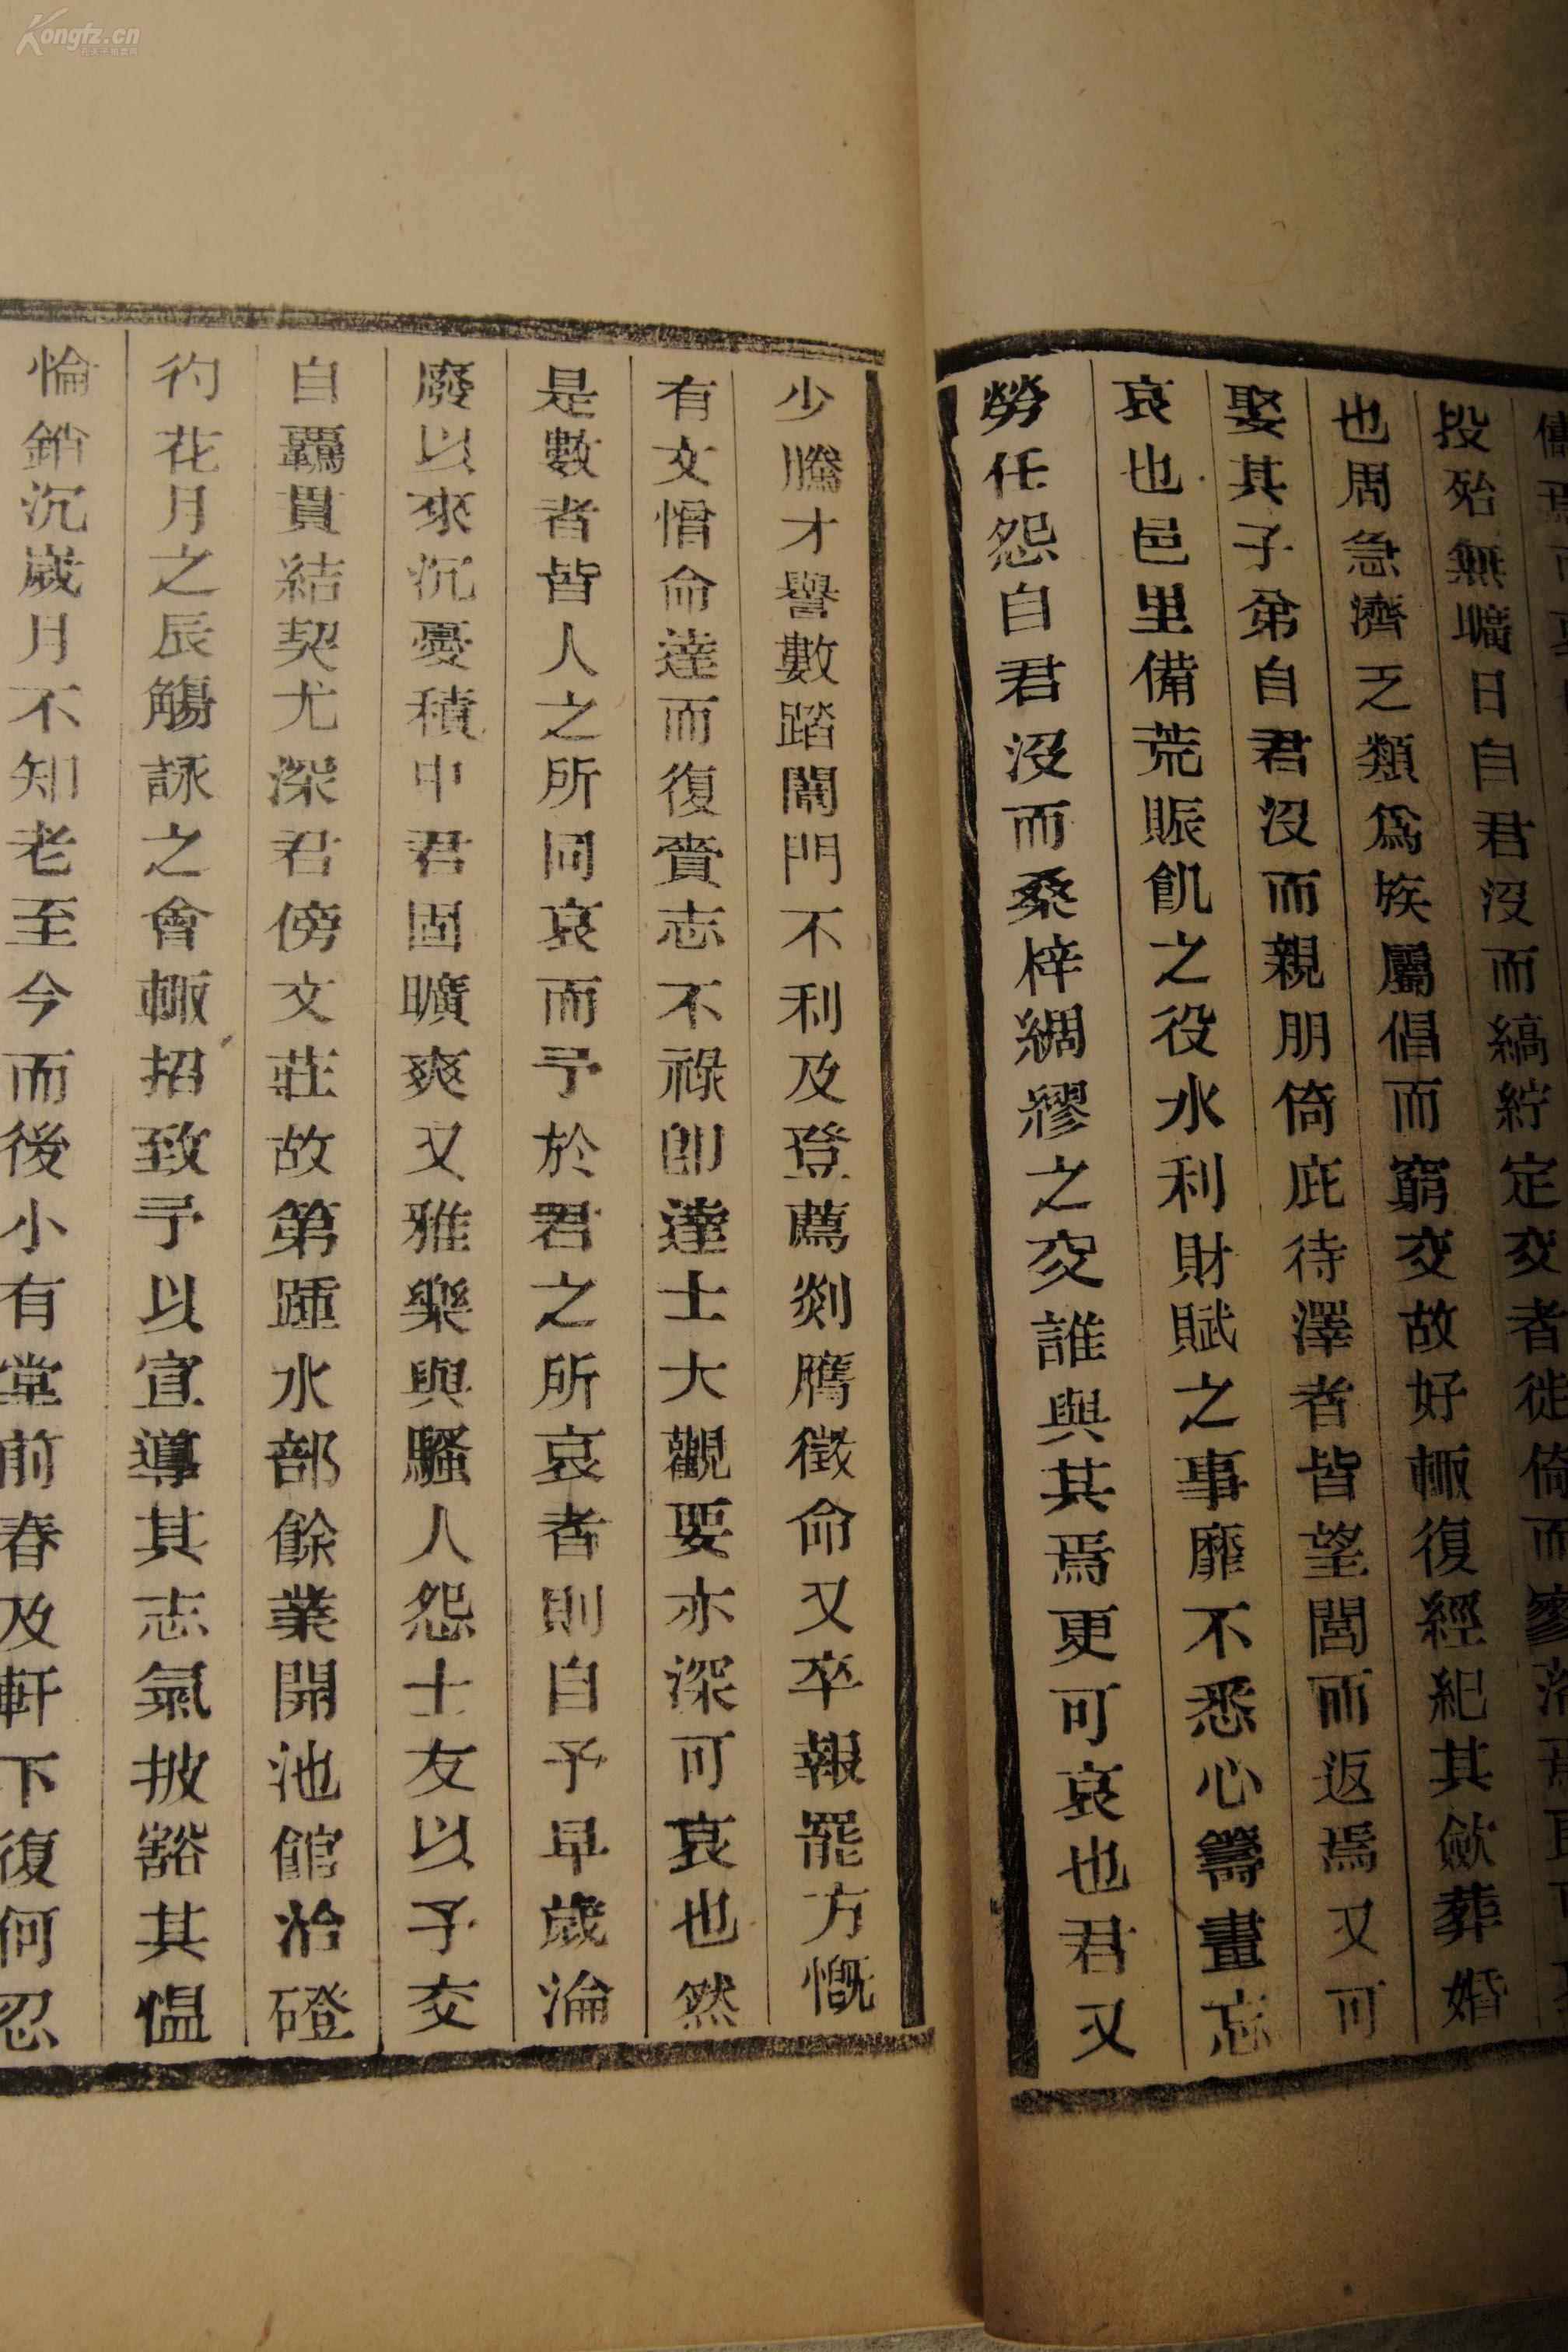 投殆無曠日自君沒而縞紵定交者徙倚而寥落焉
也周急濟乏類為族屬倡而窮交故好輙復經紀其斂葬婚
娶其子弟自君沒而親朋倚庇待澤者皆望閭而返焉又可
哀也邑里備荒賑飢之役水利財賦之事靡不悉心籌畫忘
勞任怨自君沒而桑梓綢繆之交誰與其焉更可哀也君又
少騰才譽數踏闈門不利及登薦剡膺徵命又卒報罷方慨
有文憎命達而復賫志不祿卽達士大觀要亦深可哀也然
是數者皆人之所同哀而予於君之所哀者則自予早歲淪
廢以來沉憂積中君固曠爽又雅樂與騷人怨士友以予交
自羈貫結契尤深君傍文莊故第踵水部餘業開池館治磴
彴花月之辰觴詠之會輙招致予以宣導其志氣披豁其愠
惀銷沉歲月不知老至今而後小有堂前春及軒下復何忍
Kongfz.cn